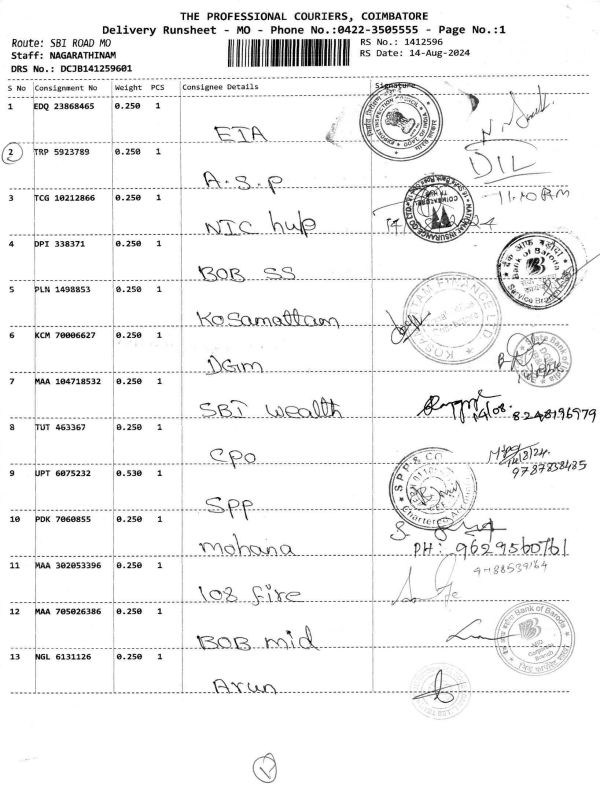 THE PROFESSIONAL COURIERS, COIMBATORE
Delivery Runsheet - MO - Phone No.:0422-3505555 - Page No.:1
Route: SBI ROAD MO
RS No.: 1412596
Staff: NAGARATHINAM
RS Date: 14-Aug-2024
DRS No.: DCJB141259601
S No Consignment No Weight PCS Consignee Details Signature
1 EDQ 23868465 0.250 1
EIA
2 TRP 5923789 0.250 1
DIL
A.S.P
11.10 AM
3 TCG 10212866 0.250 1
NIC hup
4 DPI 338371 0.250 1
Bank of Baroda
BOB SS
5 PLN 1498853 0.250 1
Kosamattam
6 KCM 70006627 0.250 1
State Bank of India
DGIM
7 MAA 104718532 0.250 1
SBI Wealth
14/08. 8248196979
8 TUT 463367 0.250 1
CPO
14/8/24.
9787838485
9 UPT 6075232 0.530 1
SPP & CO
SPP
10 PDK 7060855 0.250 1
mohana
PH: 9629560761
11 MAA 302053396 0.250 1
9788539164
108 fire
12 MAA 705026386 0.250 1
Bank of Baroda
BOB mid
13 NGL 6131126 0.250 1
Arun